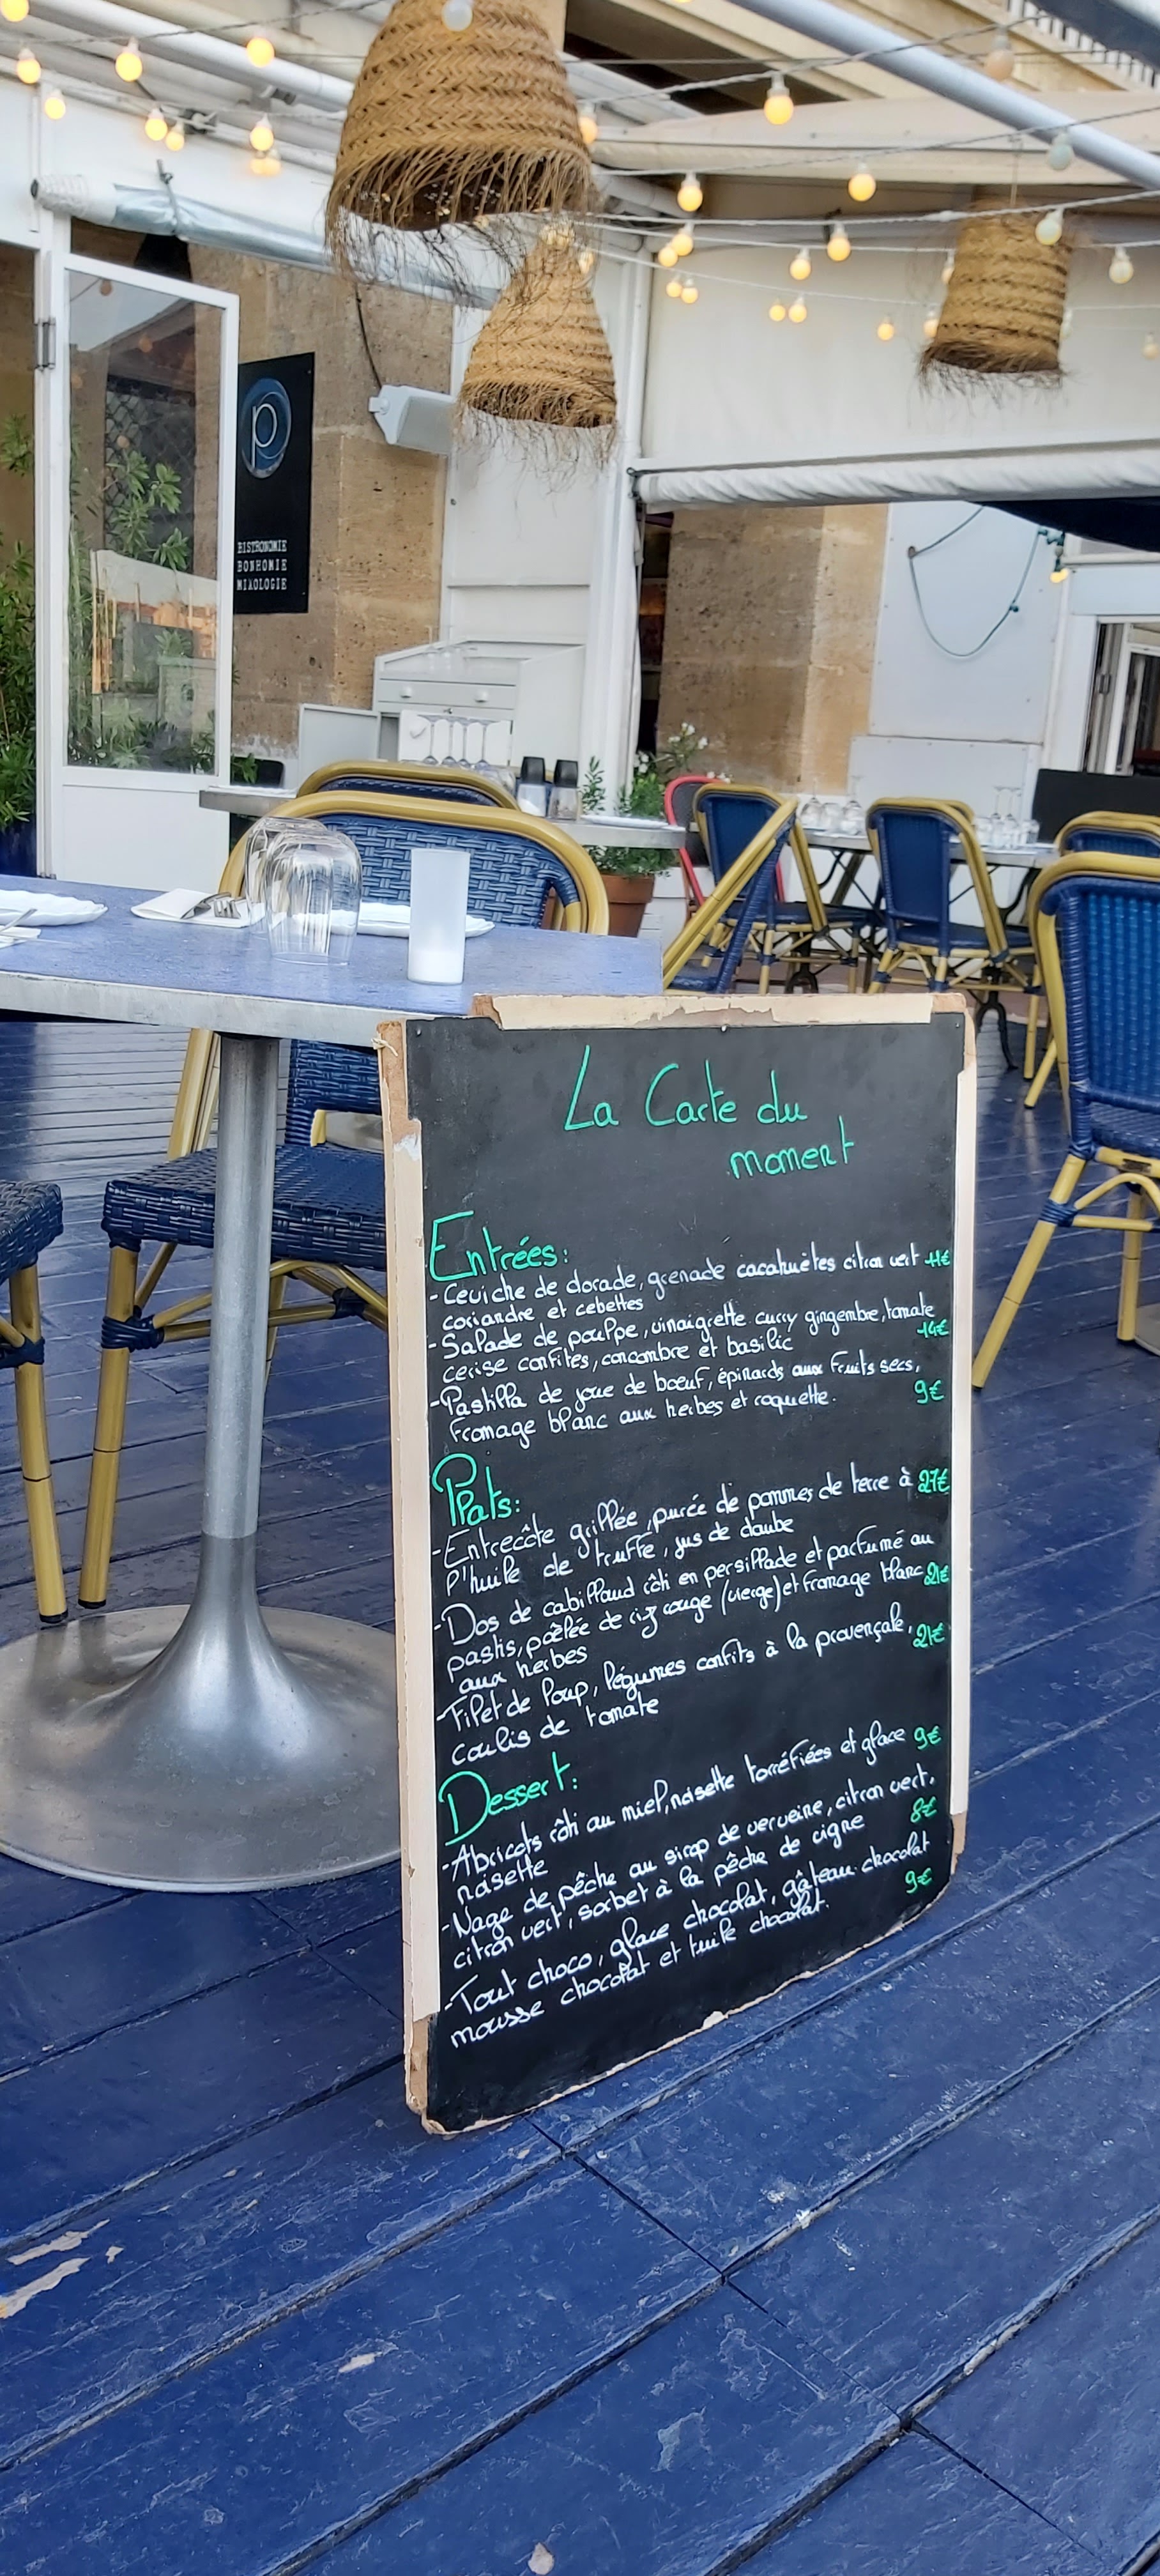 P
BISTRONOMIE
BONHOMIE
MIXOLOGIE
La Carte du
moment
Entrées:
- Ceviche de dorade, grenade cacahuètes citron vert 11€
coriandre et cebettes
- Salade de poulpe, vinaigrette curry gingembre, tomate
cerise confites, concombre et basilic 14€
- Pastilla de joue de bœuf, épinards aux fruits secs,
fromage blanc aux herbes et roquette. 9€
Plats:
- Entrecôte grillée, purée de pommes de terre à 27€
l'huile de truffe, jus de daube
- Dos de cabillaud rôti en persillade et parfumé au
pastis, poêlée de riz rouge (vierge) et fromage blanc 21€
aux herbes
- Filet de loup, légumes confits à la provençale, 21€
coulis de tomate
Dessert:
- Abricots rôti au miel, noisette torréfiées et glace 9€
noisette
- Nage de pêche au sirop de verveine, citron vert,
citron vert, sorbet à la pêche de vigne 8€
- Tout choco, glace chocolat, gâteau chocolat
mousse chocolat et tuile chocolat. 9€